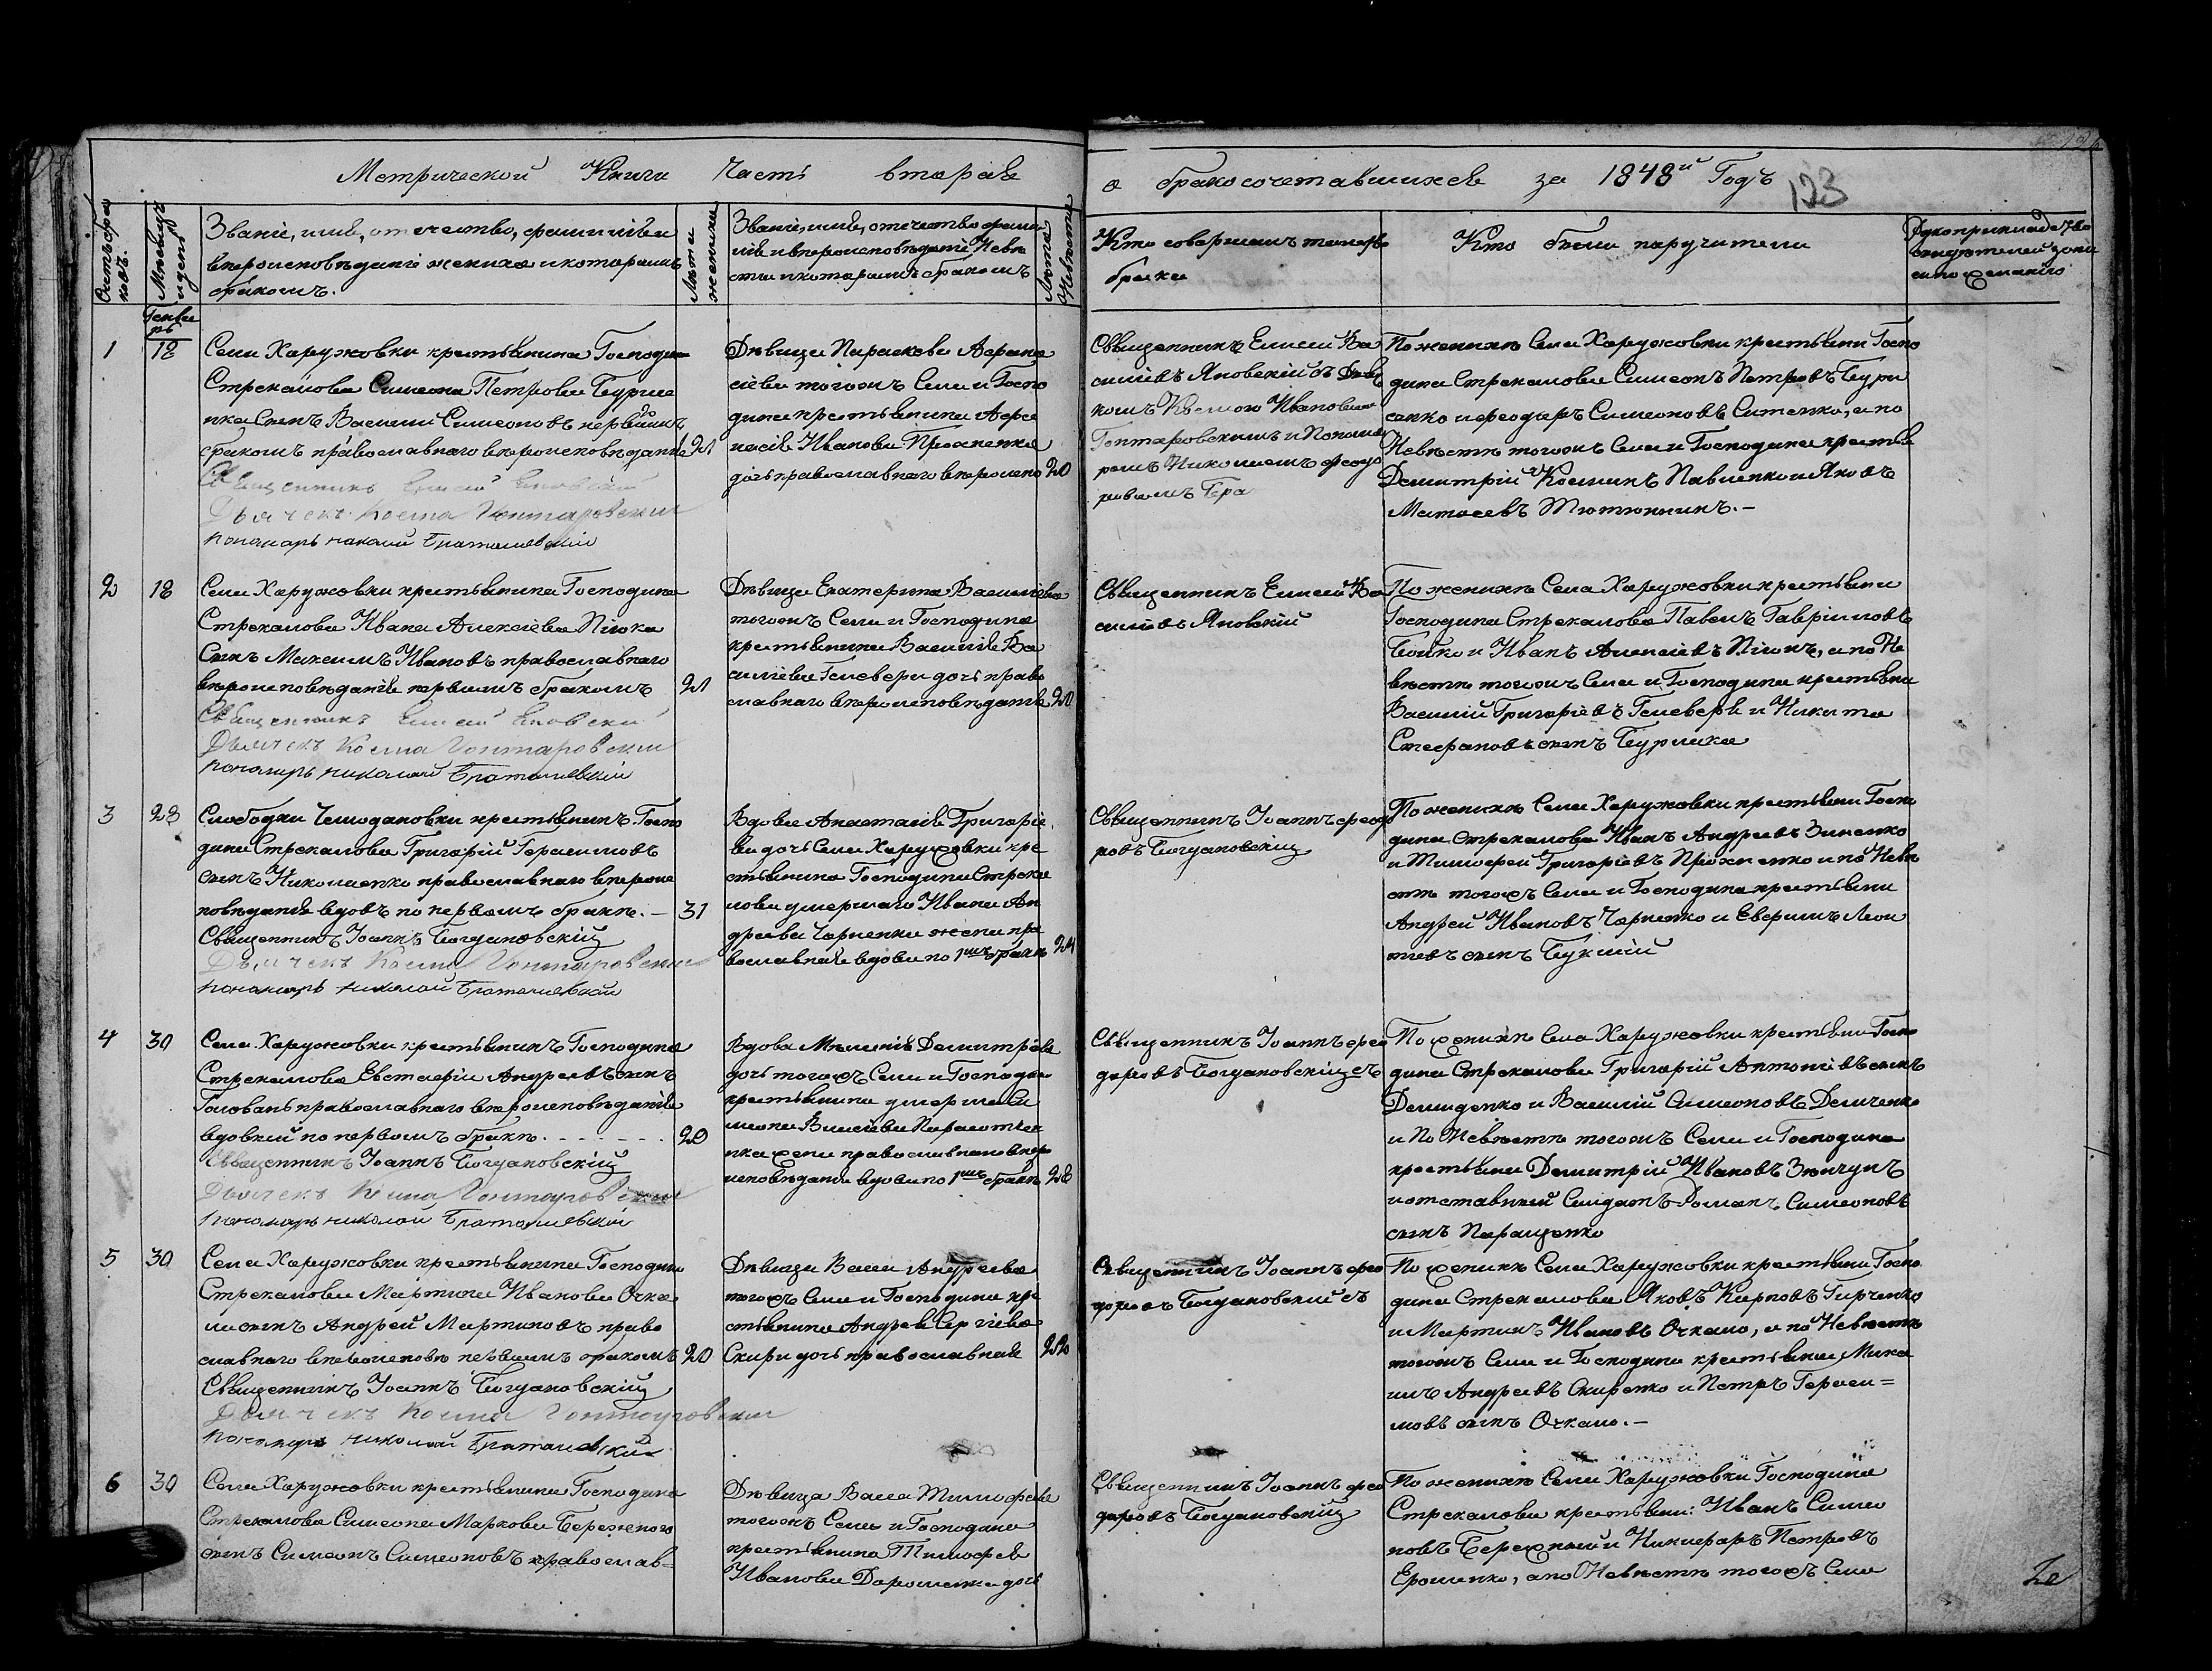 Метрической Книги Часть вторая
о бракосочетавшихся за 1848й Годъ
123
Счетъ браковъ.
Мѣсяцъ и день
Званіе, имя, отечество, фамилія и
вѣроисповѣданіе жениха и которымъ
бракомъ.
Лѣта жениха
Званіе, имя, отечество, фами
лія и вѣроисповѣданіе Невѣ
сты и которымъ бракомъ
Лѣта Невѣсты
Кто совершалъ таинство
брака
Кто были поручители
Генва
рь
1
18
Села Харужовки крестьянина Господина
Стрекалова Симеона Петрова Бурме
нка Сынъ Василій Симеоновъ первымъ
бракомъ православнаго вѣроисповѣданія
21
Священникъ Елисей Яновскій
Дьячекъ Косма Гонтаровскій
пономарь николай Браталиевскій
Дѣвица Параскева Афана
сіева тогожъ Села и Госпо
дина крестьянина Афа
насія Иванова Прохненка
дочь православнаго вѣроиспо
20
Священникъ Елисей Ва
силіевъ Яновскій съ Дья
комъ Космою Ивановымъ
Гонтаровскимъ и Понома
ремъ Николаемъ Феодо
ровымъ Бра
По женихѣ Села Харужовки крестьяни Госпо
дина Стрекалова Симеонъ Петровъ Бурм
енко и Феодоръ Симеоновъ Ситенко, а по
Невѣстѣ тогожъ Села и Господина крестья
Димитрій Космичъ Павленко и Яковъ
Матвеевъ Тютюнникъ.-
2
18
Села Харужовки крестьянина Господина
Стрекалова Ивана Алексіева Пілюка
Сынъ Максимъ Ивановъ православнаго
вѣроисповѣданія первымъ бракомъ
21
Священникъ Елисей Яновскій
Дьячекъ Косма Гонтаровскій
пономарь николай Браталиевскій
Дѣвица Екатерина Василіева
тогожъ Села и Господина
крестьянина Василія Ва
силіева Гелевери дочь право
славнаго вѣроисповѣданія
20
Священникъ Елисей Ва
силіевъ Яновскій
По женихѣ Села Харужовки крестьяни
Господина Стрекалова Павелъ Гавріиловъ
Бойко и Иванъ Алексіевъ Пілюкъ, а по Не
вѣстѣ тогожъ Села и Господина крестьяни
Василій Григоріевъ Гелеверя и Никита
Стефановъ сынъ Бурлика
3
23
Слободки Чемодановки крестьянинъ Госпо
дина Стрекалова Григорій Герасимовъ
сынъ Николаенко православнаго вѣроис
повѣданія вдовъ по первомъ бракѣ.-
31
Священникъ Іоаннъ Богдановскій
Дьячекъ Косма Гонтаровскій
пономарь николай Браталиевскій
Вдова Анастасія Григоріе
ва дочь Села Харужовки кре
стьянина Господина Стрека
лова умершаго Ивана Ан
дреева Чорненка жена пра
вославная вдова по 1мъ бракѣ
24
Священникъ Іоаннъ Феодо
ровъ Богдановскій
По женихѣ Села Харужовки крестьяни Госпо
дина Стрекалова Иванъ Андреевъ Зиненко
и Тимофей Григоріевъ Прохненко и по Невѣ
стѣ тогожъ Села и Господина крестьяни
Андрей Ивановъ Чорненко и Евфимъ Леон
тіевъ сынъ Буцкій
4
30
Села Харужовки крестьянинъ Господина
Стрекалова Евстафій Андреевъ сынъ
Головань православнаго вѣроисповѣданія
вдовый по первомъ бракѣ.
20
Священникъ Іоаннъ Богдановскій
Дьячекъ Косма Гонтаровскій
пономарь николай Браталиевскій
Вдова Меланія Димитріева
дочь тогожъ Села и Господина
крестьянина умерша Си
меона
нка жена православнаго вѣро
исповѣданія вдова по 1мъ бракѣ
28
Священникъ Іоаннъ Фео
доровъ Богдановскій съ
По женихѣ Села Харужовки крестьяни Госпо
дина Стрекалова Григорій Антоніевъ сынъ
Демиденко и Василій Симеоновъ Демченко
и по Невѣстѣ тогожъ Села и Господина
крестьяни Димитрій Ивановъ
и отставной Солдатъ Романъ Симеоновъ
сынъ Паращенко
5
30
Села Харужовки крестьянина Господина
Стрекалова Мартина Иванова Очка
ла сынъ Андрей Мартиновъ право
славнаго вѣроисповѣ первымъ бракомъ
20
Священникъ Іоаннъ Богдановскій
Дьячекъ Косма Гонтаровскій
пономарь николай Браталиевскій
Дѣвица Васса Андреева
тогожъ Села и Господина кре
стьянина Андрея Сергіева
Скири дочь православная
22
Священникъ Іоаннъ Фео
доровъ Богдановскій съ
По женихѣ Села Харужовки крестьяни Госпо
дина Стрекалова Яковъ Карповъ Гирченко
и Мартинъ Ивановъ Очкало, а по Невѣстѣ
тогожъ Села и Господина крестьяни Миха
илъ Андреевъ Скиренко и Петръ Гераси=
мовъ сынъ Очкало.-
6
30
Села Харужовки крестьянина Господина
Стрекалова Симеона Маркова Бережного
сынъ Симеонъ Симеоновъ православ=
Дѣвица Васса Тимофеева
тогожъ Села и Господина
крестьянина Тимофея
Иванова Дорошенка дочь
Священникъ Іоаннъ Фео
доровъ Богдановскій
По женихѣ Села Харужовки Господина
Стрекалова крестьяни: Иванъ Симео
новъ Бережный и Никифоръ Петровъ
Ерошенко, а по Невѣстѣ тогожъ Села